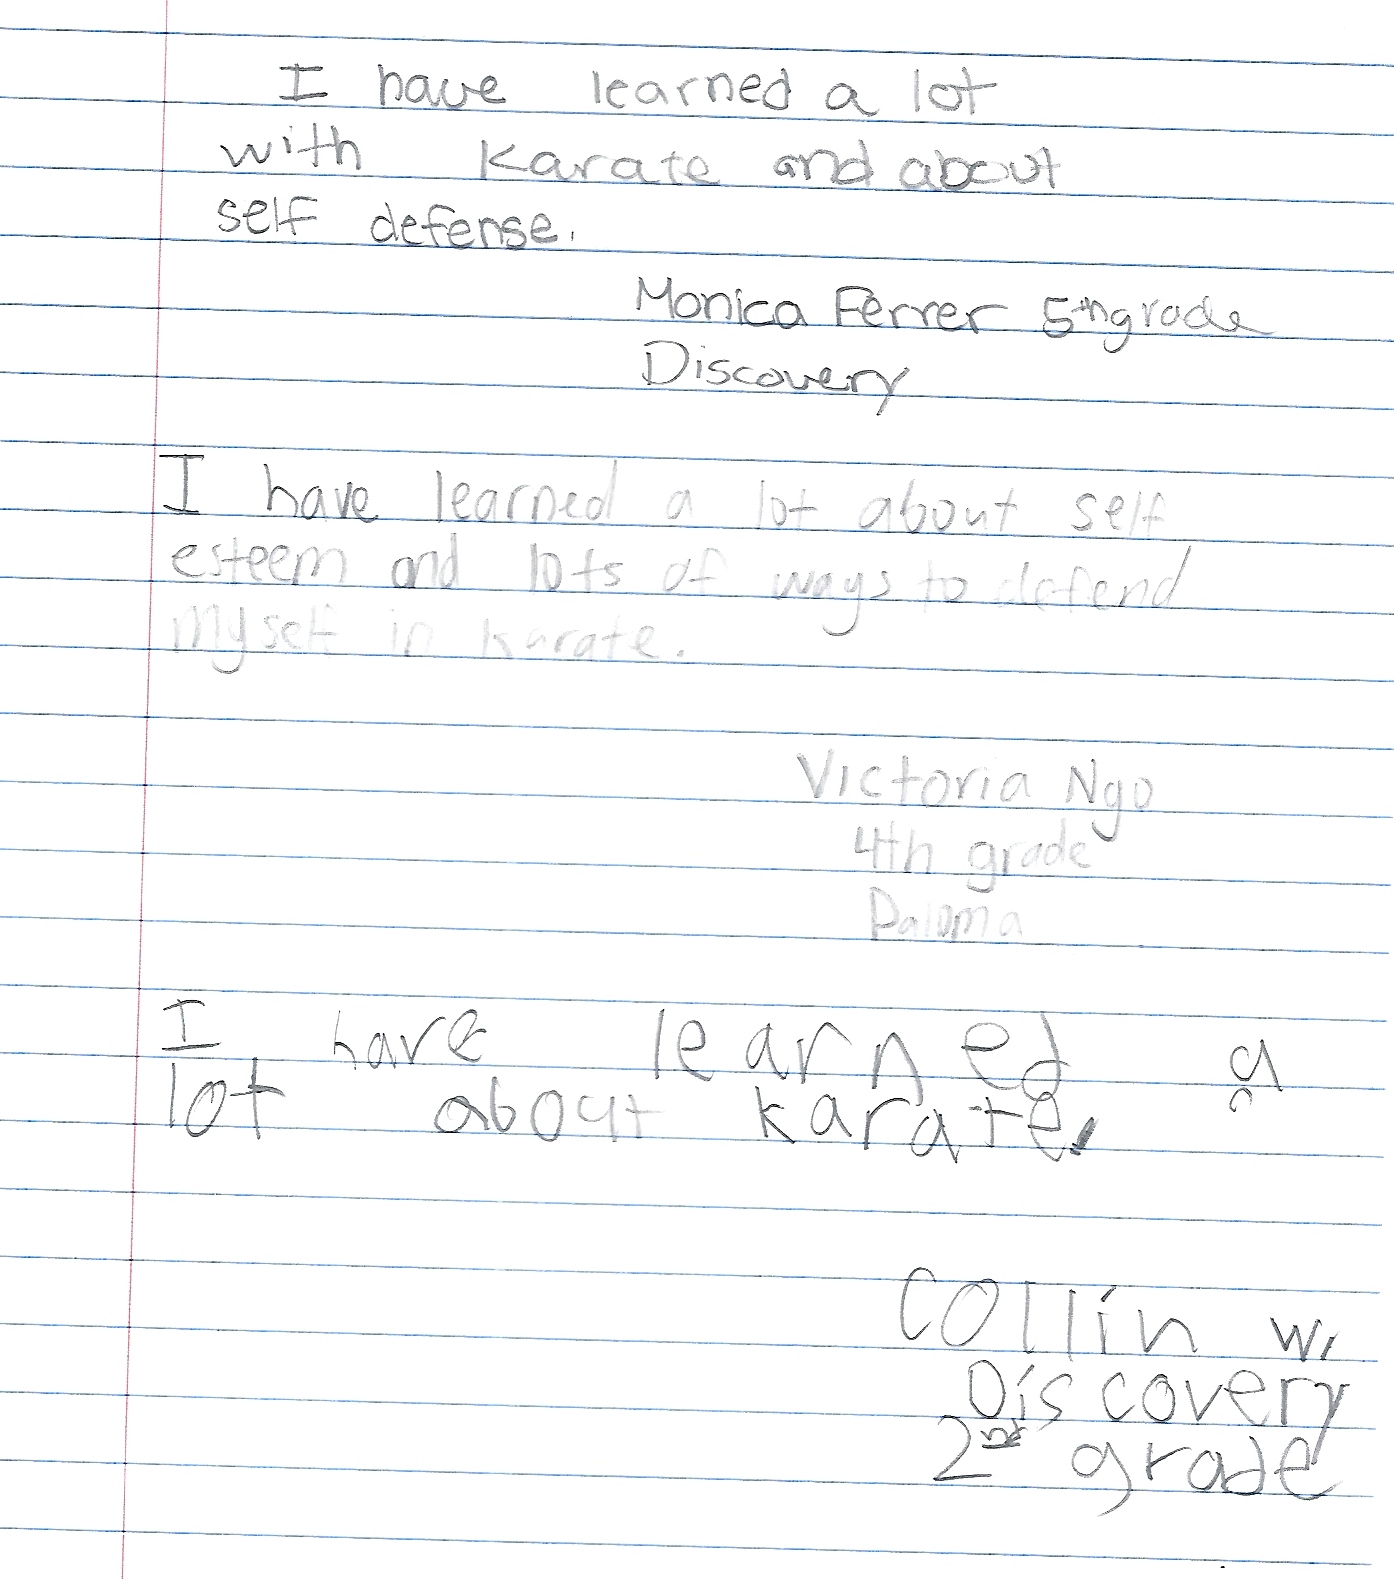 I have learned a lot
with Karate and about
self defense.
Monica Ferrer 5th grade
Discovery
I have learned a lot about self
esteem and lots of ways to defend
myself in karate.
Victoria Ngo
4th grade
Paloma
I have learned a
lot about karate.
Collin W.
Discovery
2nd grade